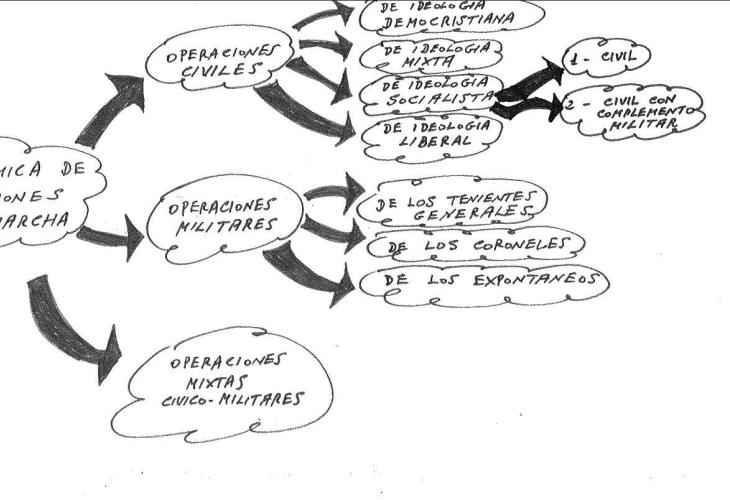 OPERACIONES
CIVILES
DE IDEOLOGIA
DEMOCRISTIANA
DE IDEOLOGIA
MIXTA
DE IDEOLOGIA
SOCIALISTA
DE IDEOLOGIA
LIBERAL
1 - CIVIL
2 - CIVIL CON
COMPLEMENTO
MILITAR
MICA DE
IONES
MARCHA
OPERACIONES
MILITARES
DE LOS TENIENTES
GENERALES
DE LOS CORONELES
DE LOS EXPONTANEOS
OPERACIONES
MIXTAS
CIVICO-MILITARES